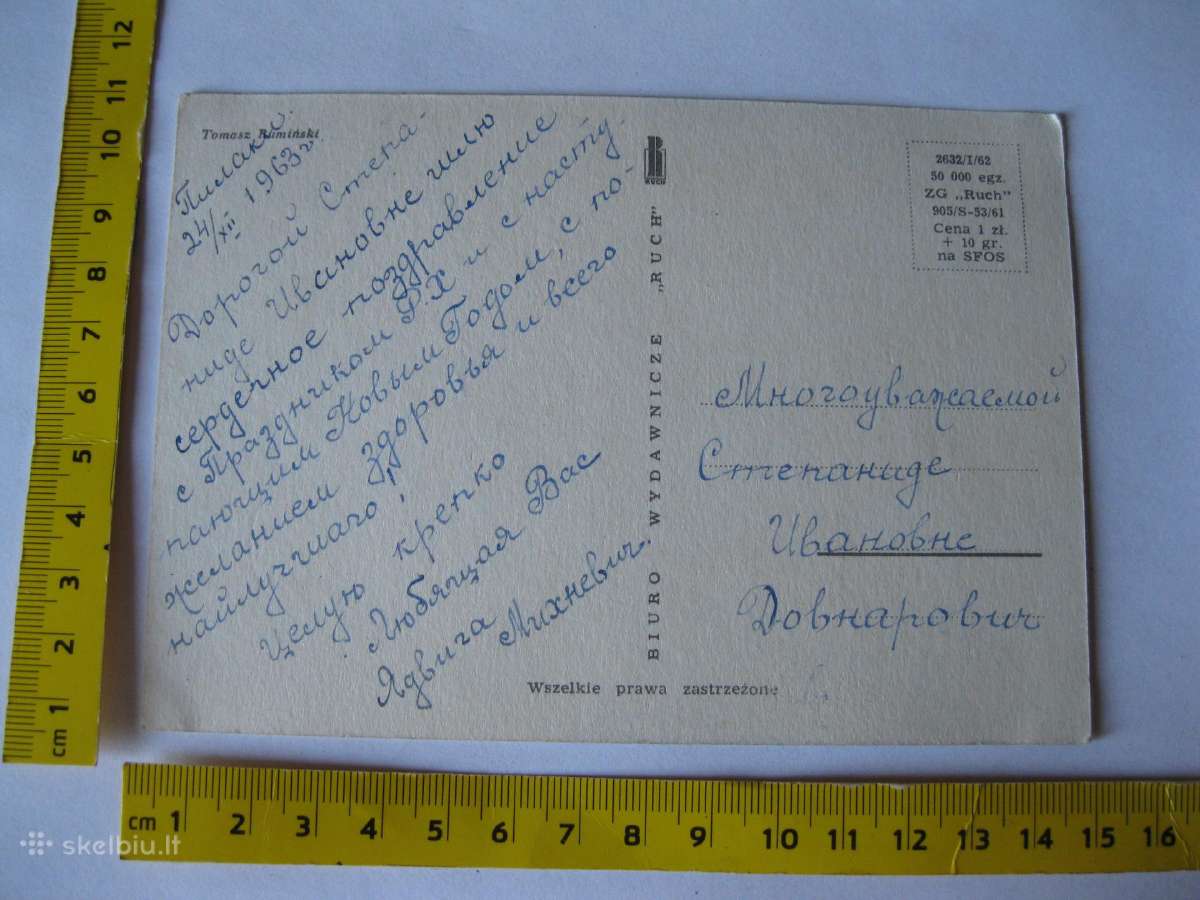 Tomasz Rumiński
Пилаки.
24/XII 1963 г.
Дорогой Степа-
ниде Ивановне шлю
сердечное поздравление
с Праздником РХ и с насту-
пающим Новым Годом, с по-
желанием здоровья и всего
найлучшаго!
Целую крепко
Любящая Вас
Ядвига Михневич.
RUCH
BIURO WYDAWNICZE „RUCH"
Wszelkie prawa zastrzeżone
2632/I/62
50 000 egz.
ZG „Ruch"
905/S-53/61
Cena 1 zł.
+ 10 gr.
na SFOS
Многоуважаемой
Степаниде
Ивановне
Довнарович
cm 1 2 3 4 5 6 7 8 9 10 11 12
cm 1 2 3 4 5 6 7 8 9 10 11 12 13 14 15 16
skelbiu.lt